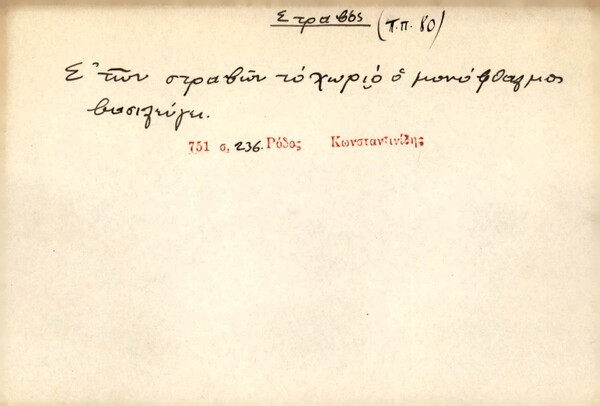 Στραβός (π.π. 80)
Σ' τῶν στραβῶν τὸ χωριὸ ὁ μονόφθαλμος
βασιλεύγει.
751 σ. 236. Ρόδος Κωνσταντινίδης